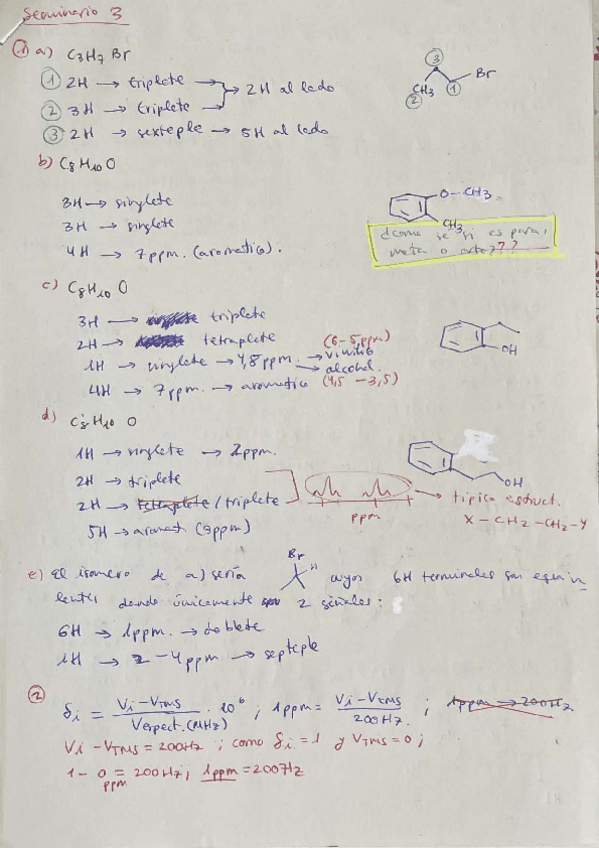 Seminario 3
① a) C3H7 Br
① 2H → triplete
② 3H → triplete → 2H al lado
③ 2H → sexteple → 5H al lado
③ Br
CH3 ① ②
b) C8H10 O
3H → singlete
3H → singlete
4H → 7 ppm. (aromatico).
O-CH3
CH3
¿como se si es para,
meta o orto???
c) C8H10 O
3H → triplete
2H → tetraplete
1H → singlete → 4,8 ppm. → vinilo (6-5 ppm)
→ alcohol (4,5 - 3,5)
4H → 7 ppm. → aromatico
OH
d) C8H10 O
1H → singlete → 2ppm.
2H → triplete
2H → tetraplete / triplete
5H → aromat (7ppm)
ppm
→ tipica estruct.
X - CH2 - CH2 - Y
OH
e) El isomero de a) sería Br H cuyos 6H terminales son equiva
lentes dando únicamente 2 señales:
6H → 1ppm. → doblete
1H → 2-4ppm → septeple
② δi = Vi - VTMS / Vespect. (MHz) · 10⁶ ; 1ppm = Vi - VTMS / 200Hz. ; 1ppm → 200Hz
Vi - VTMS = 200Hz ; como δi = 1 y VTMS = 0 ;
1 - 0 = 200Hz, 1ppm = 200Hz
ppm